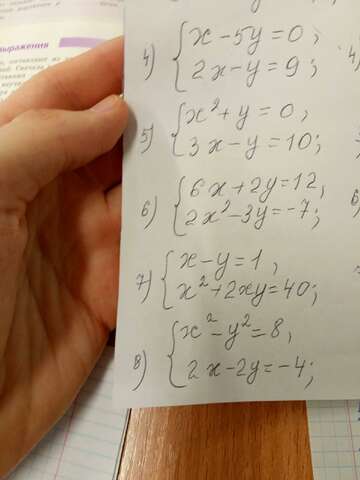 выражения
4) { x - 5y = 0 ;
2x - y = 9 ;
5) { x² + y = 0 ,
3x - y = 10 ;
6) { 6x + 2y = 12 ,
2x² - 3y = -7 ;
7) { x - y = 1 ,
x² + 2xy = 40 ;
8) { x² - y² = 8 ,
2x - 2y = -4 ;